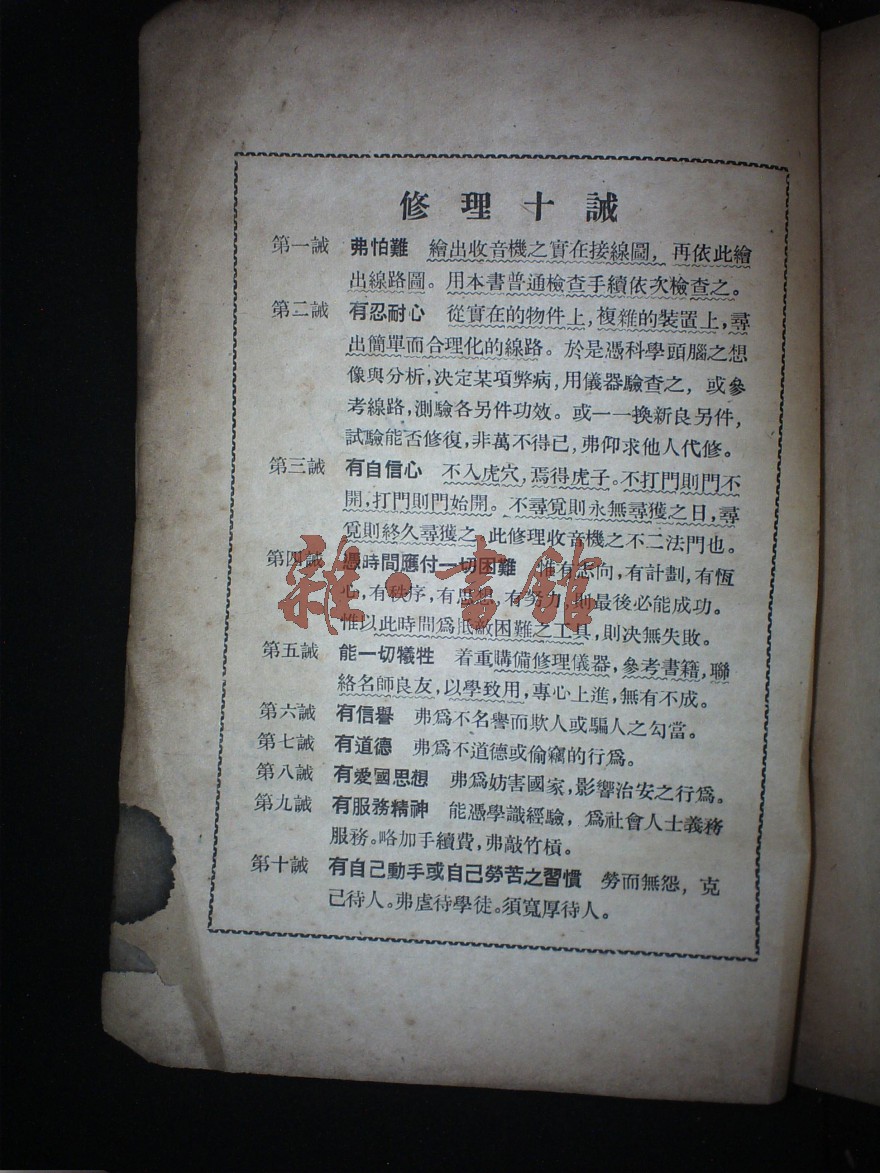 修理十誡
第一誡 弗怕難 繪出收音機之實在接線圖，再依此繪
出線路圖。用本書普通檢查手續依次檢查之。
第二誡 有忍耐心 從實在的物件上，複雜的裝置上，尋
出簡單而合理化的線路。於是憑科學頭腦之想
像與分析，決定某項弊病，用儀器驗查之，或參
考線路，測驗各另件功效。或一一換新良另件，
試驗能否修復，非萬不得已，弗仰求他人代修。
第三誡 有自信心 不入虎穴，焉得虎子。不打門則門不
開，打門則門始開。不尋覓則永無尋獲之日，尋
覓則終久尋獲之。此修理收音機之不二法門也。
第四誡 憑時間應付一切困難 惟有志向，有計劃，有恆
心，有秩序，有思想，有努力，則最後必能成功。
惟以此時間爲抵敵困難之工具，則決無失敗。
第五誡 能一切犧牲 着重購備修理儀器，參考書籍，聯
絡名師良友，以學致用，專心上進，無有不成。
第六誡 有信譽 弗爲不名譽而欺人或騙人之勾當。
第七誡 有道德 弗爲不道德或偷竊的行爲。
第八誡 有愛國思想 弗爲妨害國家，影響治安之行爲。
第九誡 有服務精神 能憑學識經驗，爲社會人士義務
服務。略加手續費，弗敲竹槓。
第十誡 有自己動手或自己勞苦之習慣 勞而無怨，克
己待人。弗虐待學徒。須寬厚待人。
雜·書館